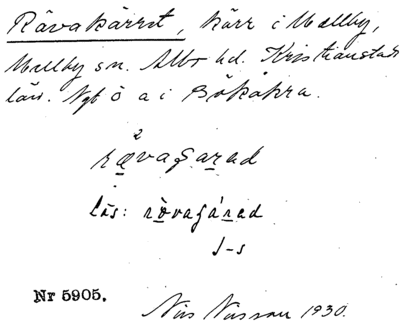 Rävakärret, kärr i Mellby,
Mellby sn. Albo hd. Kristianstads
län. Ngt ö a i Bökåkra.
2
rævagarad
läs: rövagárad
J-s
Nr 5905.
Nils Nilsson 1930.